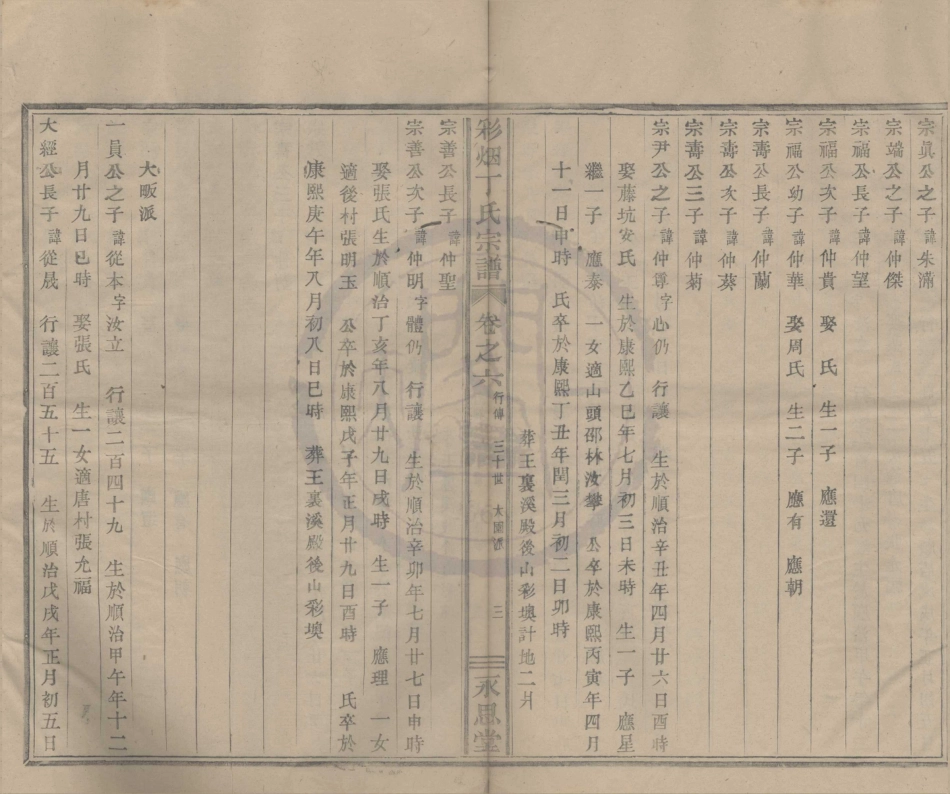 宗眞公之子諱朱滿
宗端公之子諱仲傑
宗福公長子諱仲望
宗福公次子諱仲貴 娶 氏 生一子 應還
宗福公幼子諱仲華 娶周氏 生二子 應有 應朝
宗壽公長子諱仲蘭
宗壽公次子諱仲葵
宗壽公三子諱仲菊
宗尹公之子諱仲尊字心仍 行讓 生於順治辛丑年四月廿六日酉時
娶藤坑安氏 生於康熙乙巳年七月初三日未時 生一子 應星
繼一子 應泰 一女適山頭邵林汝攀 公卒於康熙丙寅年四月
十一日申時 氏卒於康熙丁丑年閏三月初二日卯時
葬王裏溪殿後山彩墺計地二爿
彩烟丁氏宗譜 卷之六 行傳 三十世 大園派 三 永思堂
宗善公長子諱仲聖
宗善公次子諱仲明字體仍 行讓 生於順治辛卯年七月廿七日申時
娶張氏生於順治丁亥年八月廿九日戌時 生一子 應理 一女
適後村張明玉 公卒於康熙戊子年正月廿九日酉時 氏卒於
康熙庚午年八月初八日巳時 葬王裏溪殿後山彩墺
大畈派
一員公之子諱從本字汝立 行讓二百四十九 生於順治甲午年十二
月廿九日巳時 娶張氏 生一女適唐村張允福
大經公長子諱從晟 行讓二百五十五 生於順治戊戌年正月初五日